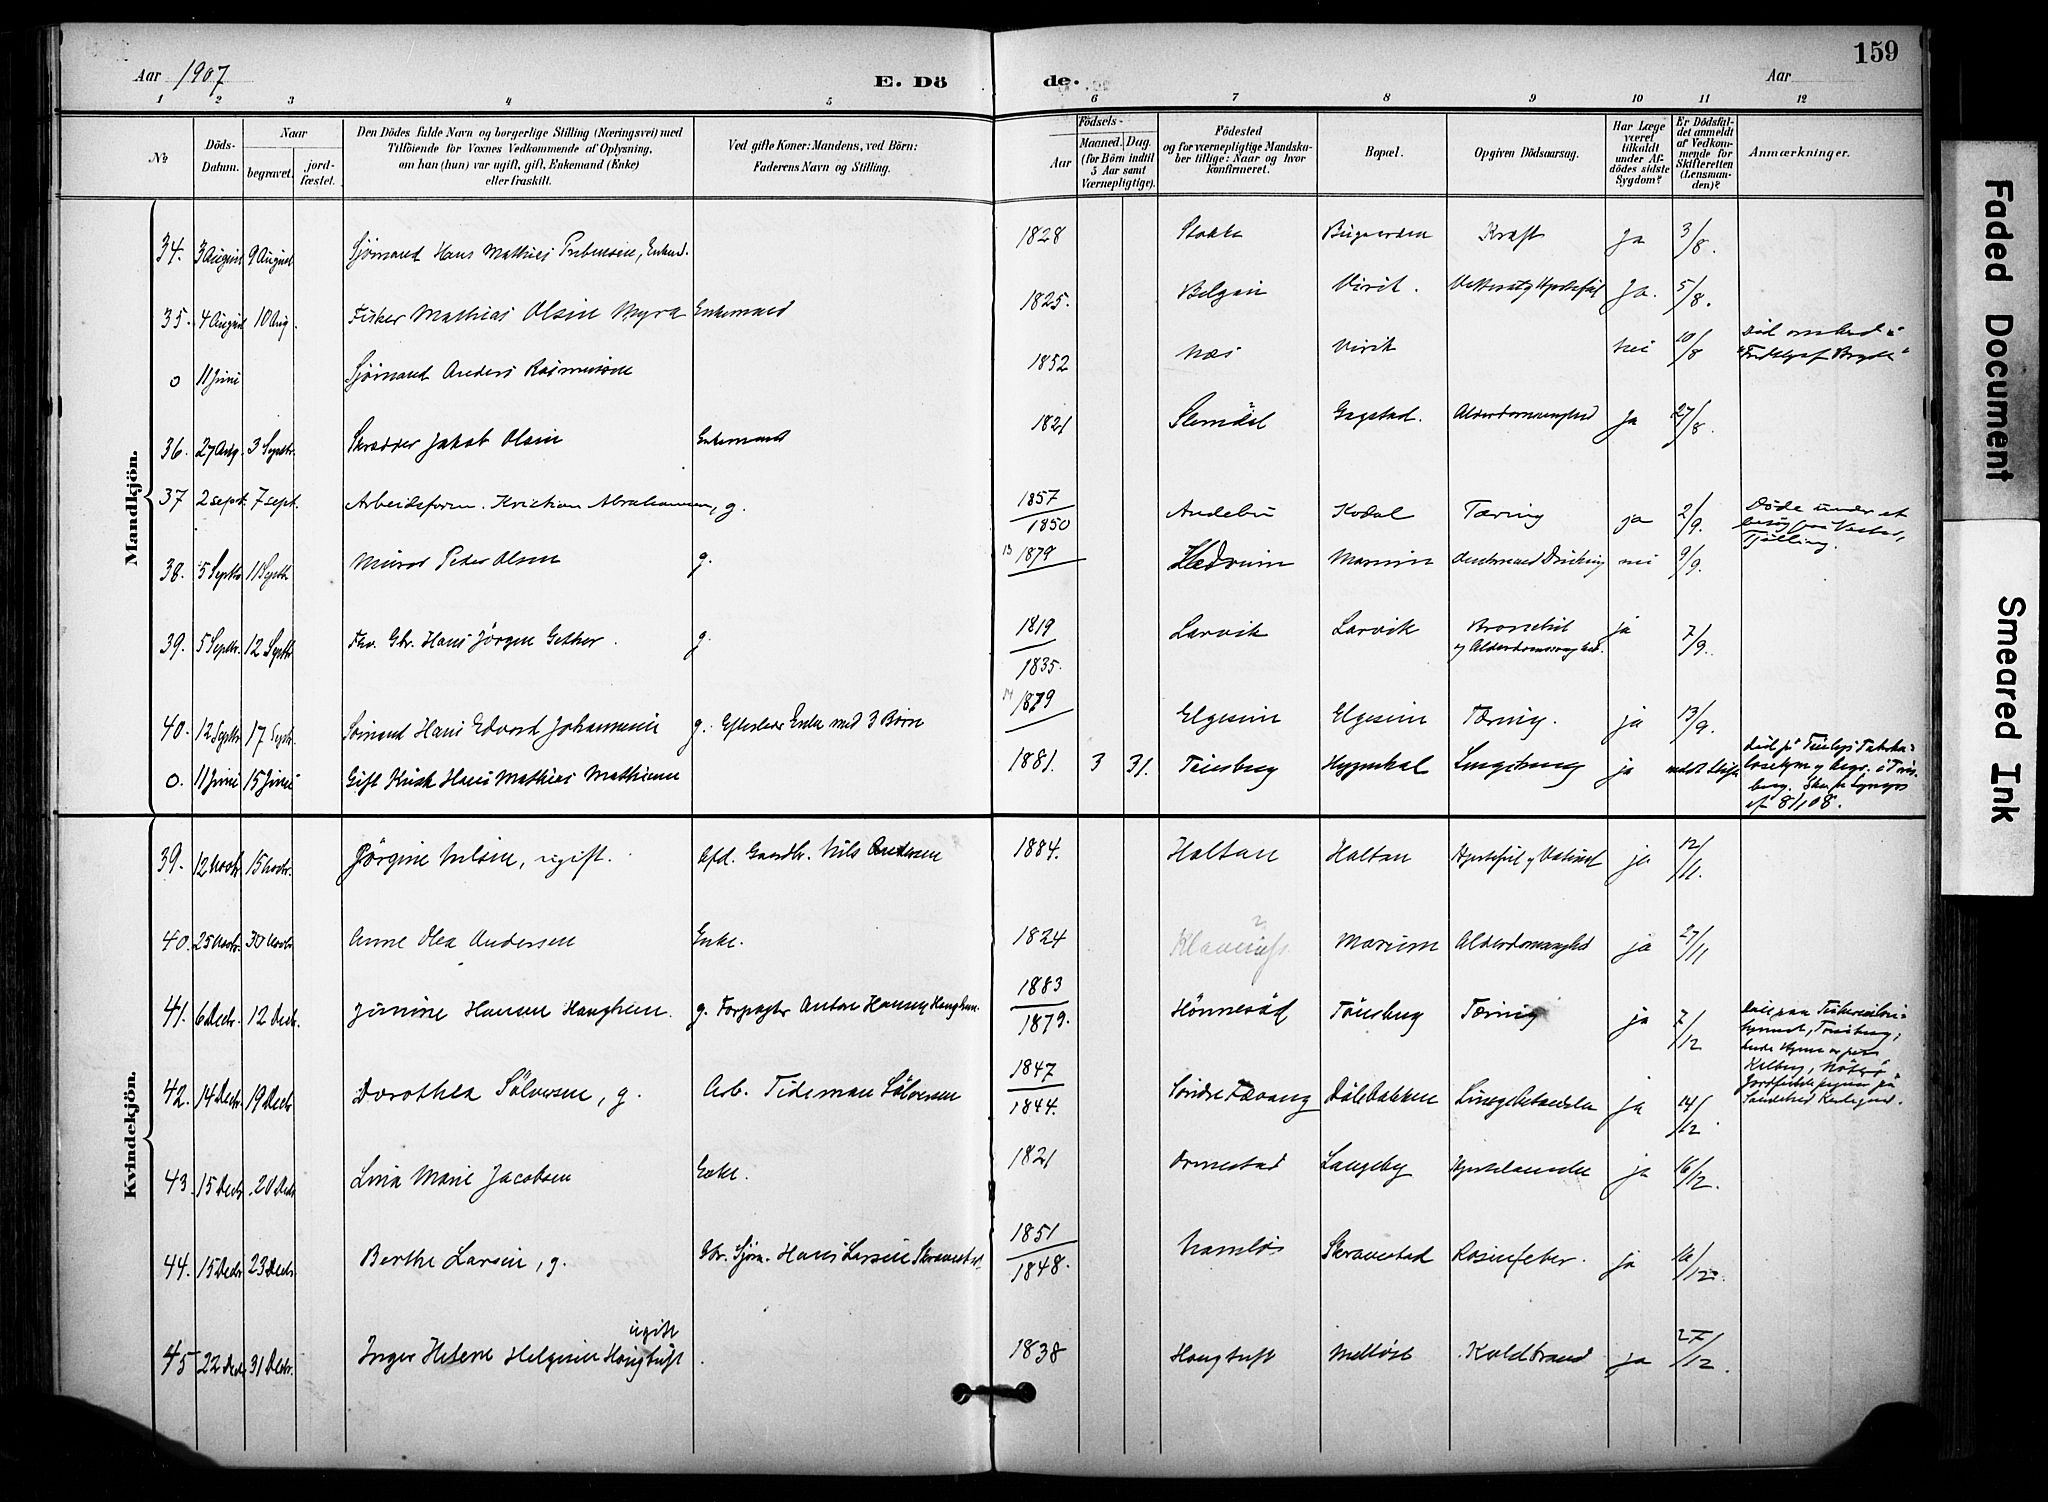 159
Aar 1907
E. Döde.
Aar
1 2 3 4 5 6 7 8 9 10 11 12
No
Döds-Datum.
Naar begravet. jord-fæstet.
Den Dödes fulde Navn og borgerlige Stilling (Næringsvei) med
Tilföiende for Voxnes Vedkommende af Oplysning,
om han (hun) var ugift, gift, Enkemand (Enke)
eller fraskilt.
Ved gifte Koner: Mandens, ved Börn:
Faderens Navn og Stilling.
Födsels-
Aar
Maaned. Dag.
(for Börn indtil
5 Aar samt
Værnepligtige).
Födested
og for værnepligtige Mandska-
ber tillige: Naar og hvor
konfirmeret.
Bopæl.
Opgiven Dödsaarsag.
Har Læge
været
tilkaldt
under Af-
dödes sidste
Sygdom?
Er Dödsfal-
det anmeldt
af Vedkom-
mende for
Skifteretten
(Lensman-
den)?
Anmærkninger.
Mandkjön.
34. 3 August 9 August Sjömand Hans Mathias 1828 Stokke Kraft Ja 3/8.
35. 4 August 10 Aug. Fisker Mathias Olsen Myra Enkemand 1825. Virik. Ja. 5/8.
0 11 Juni Sjömand Anders Rasmussen 1852 Næs Virik nei 10/8
36. 27 Aug. 3 Septbr. Skrædder Jakob Olsen Enkemand 1821 Slemdal Gogstad. Alderdomssvaghed Ja 27/8.
37 2 sept. 7 sept. Arbeidsform. Kristian Abrahamsen, g. 1857/1850 Andebu Kodal Tæring ja 2/9. Døde under et
Tjølling.
38. 5 Septbr 11 Septb Murer Peder Olsen g. 13 1879 Hedrum Marum Drukning nei 9/9.
39. 5 Septbr. 12 Septb Fhv. Gbr. Hans Jørgen Gether. g. 1819/1835. Larvik Larvik og Alderdomssvaghed. ja 7/9.
40. 12 Septbr 17 Septbr. Sömand Hans Edvard Johannesen g. Efterlader Enke med 3 Börn 14 1879 Elgesem Elgesem Tæring. ja 13/9.
0. 11 Juni 15 Juni Gift Kusk Hans Mathias Mathisen 1881. 3 31. Tønsberg ja
af 8/1 08.
Kvindekjön.
39. 12 Novbr 15 Novbr. Jörgine Nilsen, ugift. Afd. Gaardbr. Nils Andersen 1884. Haltan Haltan ja 12/11.
40. 25 Novbr. 30 Novbr Anne Olea Andersen Enke. 1824 ? Marum Alderdomssvaghed ja 27/11
41. 6 Decbr. 12 Decbr. Junine Hansen Haughem. g. Forpagter Anton Hansen Haughem. 1883/1879. Hönnesöd Tönsberg Tæring ja 7/12
42. 14 Decbr. 19 Decbr Dorothea Sölversen, g. Arb. Tideman Sölversen 1847/1844. Søndre Fevang Dölebakken Lungebetændelse ja 14/12
Sandeherred Kirkegaard.
43. 15 Decbr. 20 Decbr Lina Marie Jacobsen Enke. 1821 Ormestad Langeby ja 16/12.
44. 15 Decbr 23 Decbr. Berthe Larsen, g. Gbr. Sjøm. Hans Larsen Skravestad. 1851/1848. Namløs Skravestad Rosenfeber. ja 16/12.
45 22 Decb 31 Decbr. Inger Helene Helgesen Haugtuft ugift 1838 Haugtuft Koldbrand ja 27/12.
Faded Document
Smeared Ink